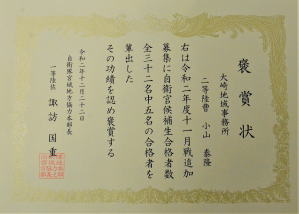 褒賞状
大崎地域事務所
二等陸曹 小山 泰隆
右は令和二年度十一月戦追加
募集に自衛官候補生合格者数
全三十二名中五名の合格者を
輩出した
その功績を認め褒賞する
令和二年十二月二十二日
自衛隊宮城地方協力本部長
一等陸佐 諏訪 国重